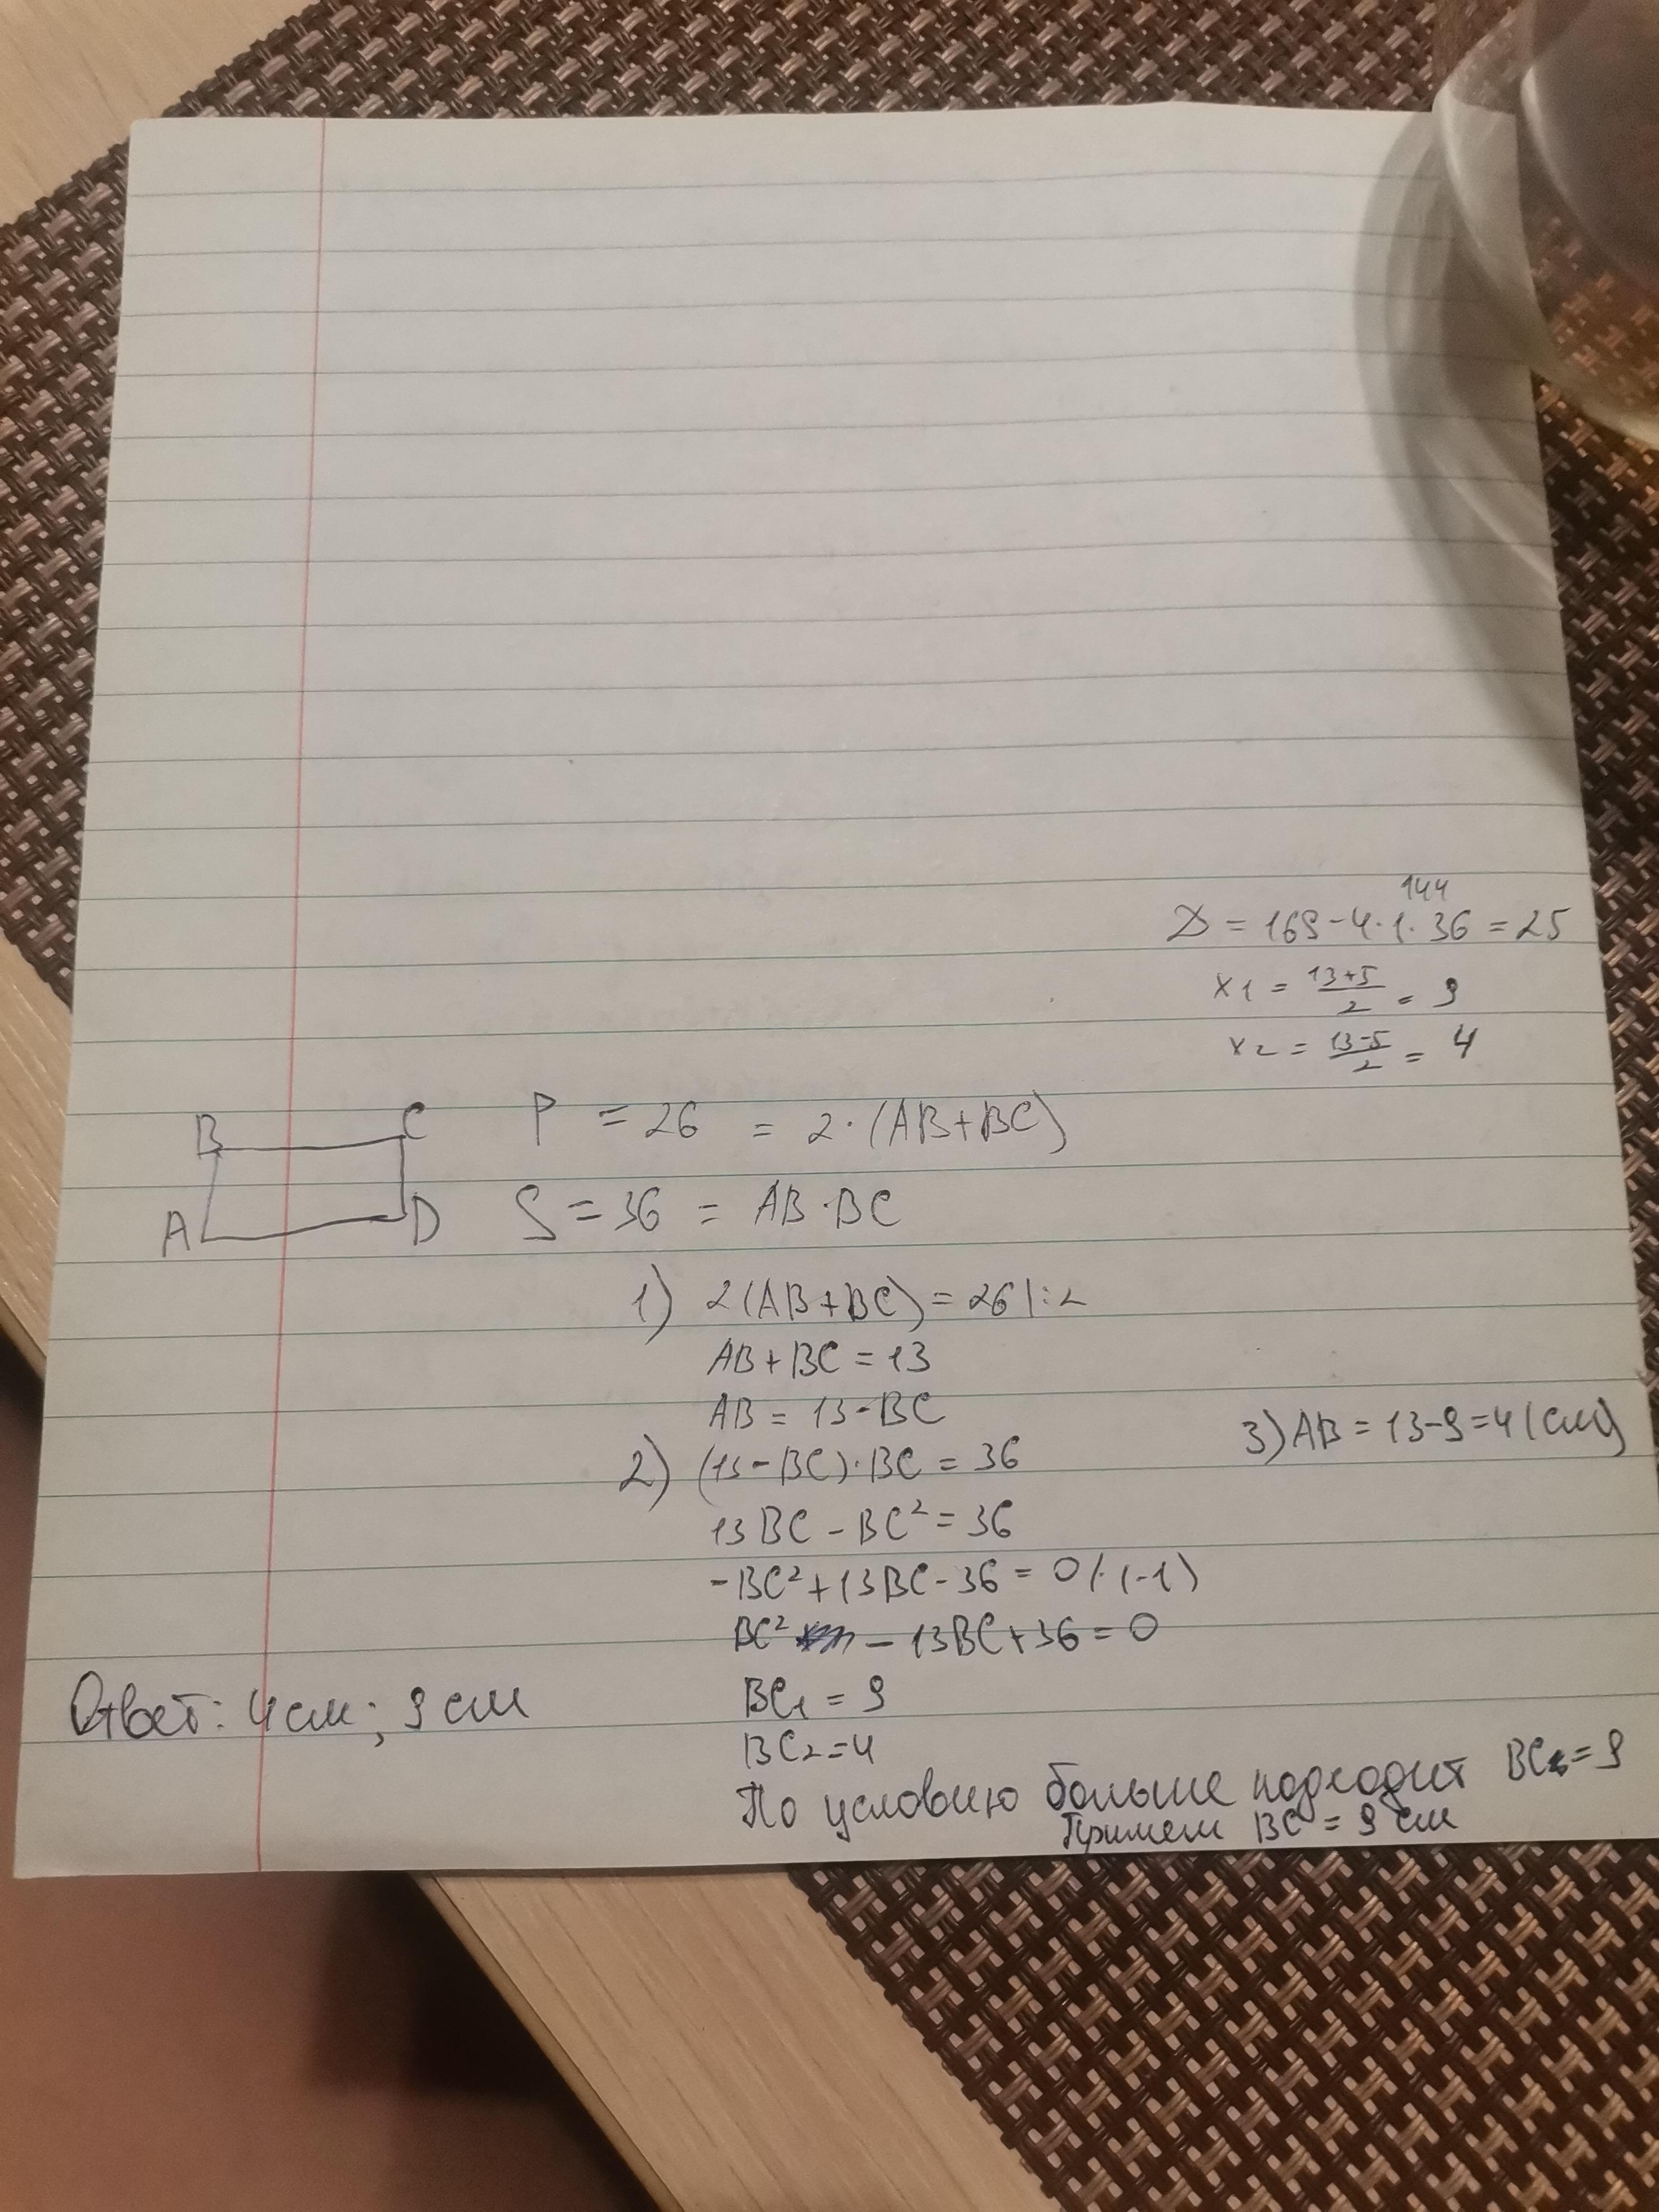 D = 169 - 4·1·36 = 25
144
x1 = (13+5)/2 = 9
x2 = (13-5)/2 = 4
B C
A D
P = 26 = 2·(AB+BC)
S = 36 = AB·BC
1) 2(AB+BC) = 26 |:2
AB+BC = 13
AB = 13-BC
2) (13-BC)·BC = 36
13BC - BC² = 36
-BC²+13BC-36 = 0 |·(-1)
BC² - 13BC+36 = 0
BC1 = 9
BC2 = 4
По условию больше подходит BC = 9
Примем BC = 9 см
3) AB = 13-9 = 4 (см)
Ответ: 4 см; 9 см